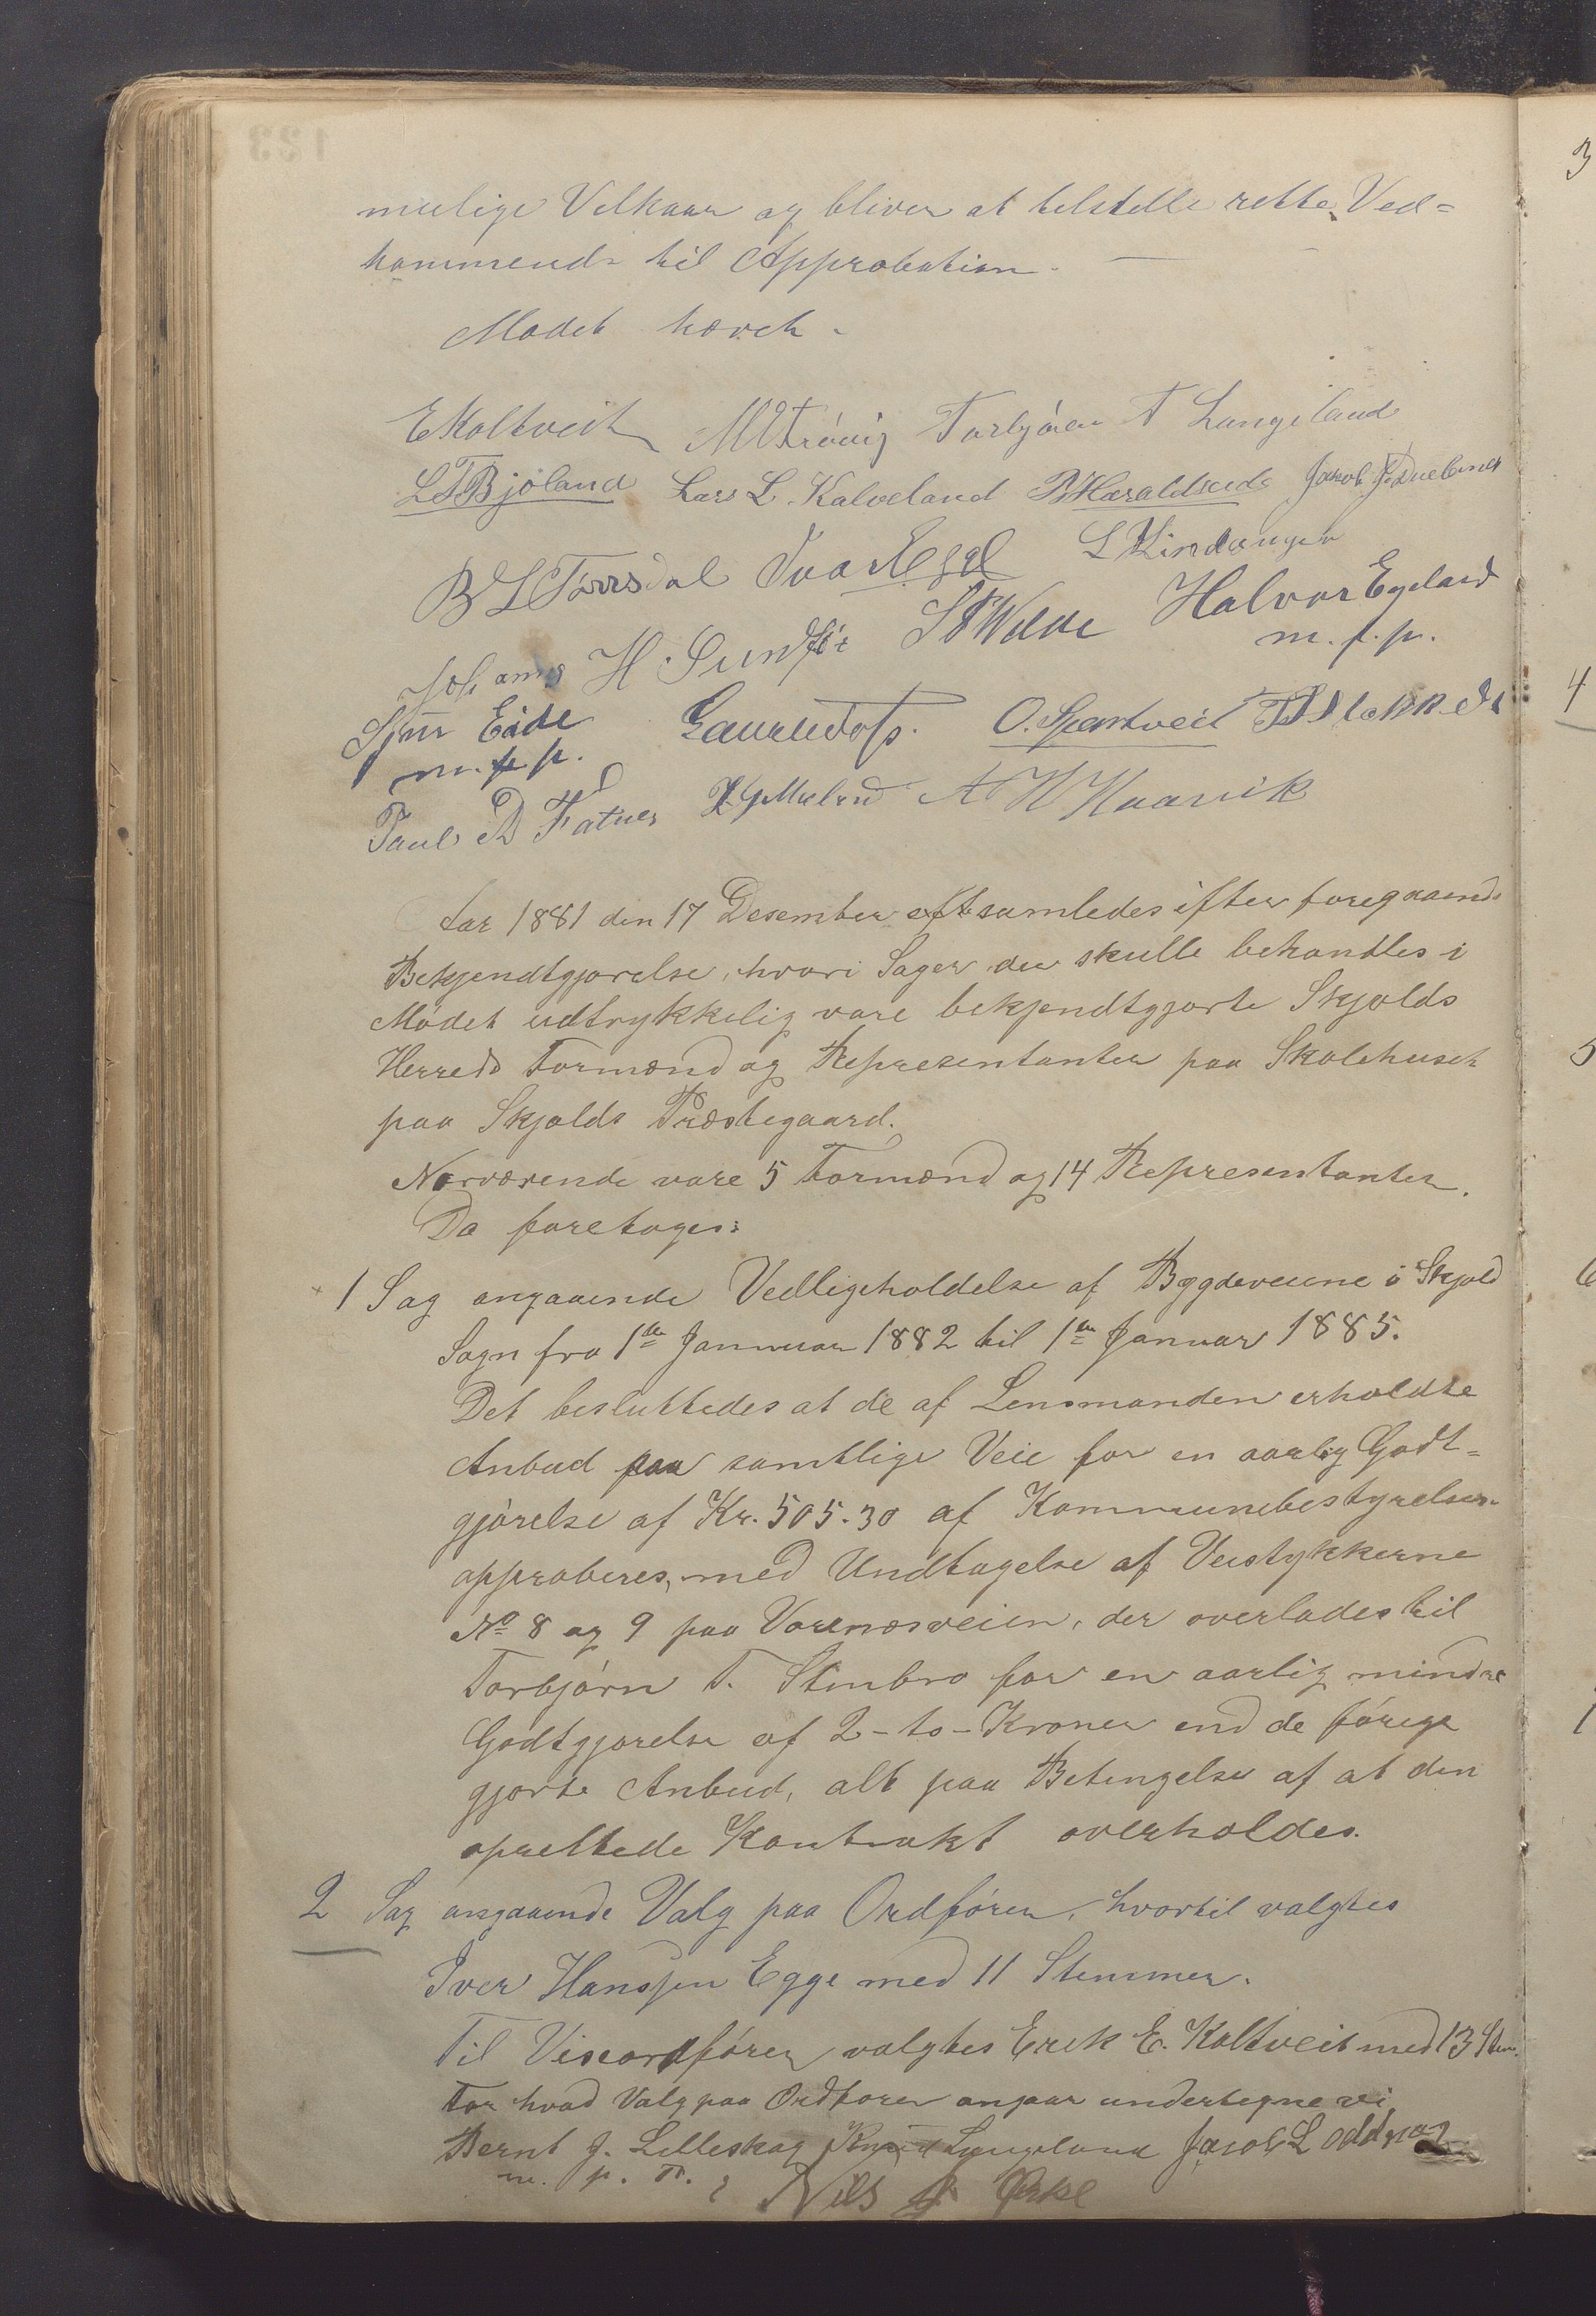 mulige Vilkaar og bliver at tilstille rette Ved=
kommende til Approbation.
Mødet hævet.
E Koltveit M V Trøvig Torbjøren T Langeland
L T Bjøland Lars L. Kalveland B Haraldseide Jakob J.
B L Tørrsdal Ivar L Lindanger
Johannes H. Sundfør Halvor Egeland
m. f. p.
Sjur Eide O. Spartveit
m. f. p.
Paul A Fatnes A H Haavik
Aar 1881 den 17 Desember samledes ifter foregaaende
Bekjendtgjørelse, hvori Sager der skulle behandles i
Mødet udtrykkelig vare bekjendtgjorte Skjolds
Herreds Formænd og Repræsentanter paa Skolehuset
paa Skjolds Præstegaard.
Nærværende vare 5 Formænd og 14 Repræsentanter.
Da foretoges:
1 Sag angaaende Vedligeholdelse af Bygdeveiene i Skjold
Sogn fra 1ste Januar 1882 til 1ste Januar 1885.
Det besluttedes at de af Lensmanden erholdte
Anbud paa samtlige Veie for en aarlig Godt=
gjørelse af Kr. 505.30 af Kommunebestyrelsen
approberes, med Undtagelse af Veistykkerne
No 8 og 9 paa Vorenæsveien, der overlades til
Torbjørn T. Stenbro for en aarlig mindre
Godtgjørelse af 2 - to - Kroner end de førige
gjorte Anbud, alt paa Betingelse af at den
oprettede Kontrakt overholdes.
2 Sag angaaende Valg paa Ordfører, hvortil valgtes
Iver Hansen Egge med 11 Stemmer.
Til Viseordfører valgtes Erik E. Koltveit med 13 Stem.
For hvad Valg paa Ordfører angaar undertegne vi
Bernt J. Lilleskog Knud Langeland Jacob L Oddnes
m. p. P. Nils Ørke
3
4
5
6